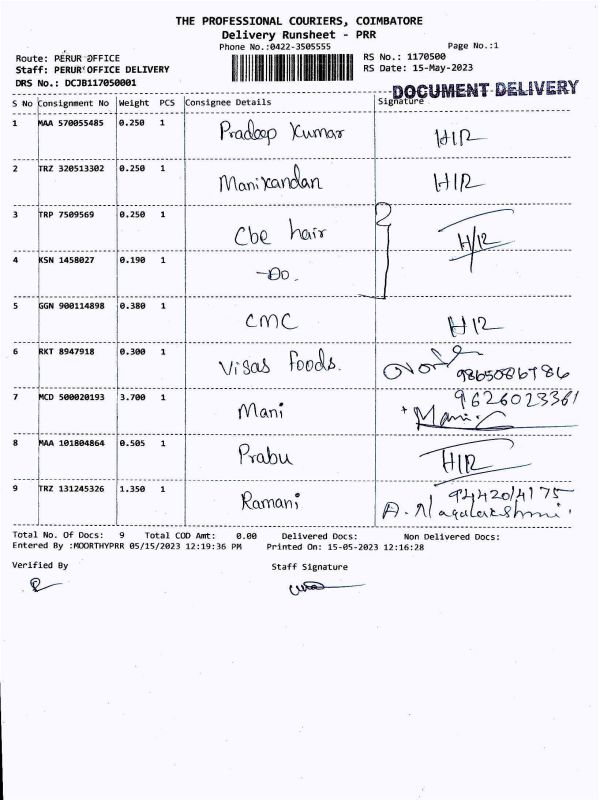 THE PROFESSIONAL COURIERS, COIMBATORE
Delivery Runsheet - PRR
Phone No.:0422-3505555 Page No.:1
Route: PERUR OFFICE RS No.: 1170500
Staff: PERUR OFFICE DELIVERY RS Date: 15-May-2023
DRS No.: DCJB117050001
DOCUMENT DELIVERY
S No Consignment No Weight PCS Consignee Details Signature
1 MAA 570055485 0.250 1 Pradeep Kumar H/R
2 TRZ 320513302 0.250 1 Manikandan H/R
3 TRP 7509569 0.250 1 Cbe hair H/R
4 KSN 1458027 0.190 1 -Do.
5 GGN 900114898 0.380 1 CMC H/R
6 RKT 8947918 0.300 1 Visas Foods. 9865086786
7 MCD 500020193 3.700 1 Mani 9626023361
Mani
8 MAA 101804864 0.505 1 Prabu H/R
9 TRZ 131245326 1.350 1 Ramani 9442014175
A. Nagalakshmi.
Total No. Of Docs: 9 Total COD Amt: 0.00 Delivered Docs: Non Delivered Docs:
Entered By :MOORTHYPRR 05/15/2023 12:19:36 PM Printed On: 15-05-2023 12:16:28
Verified By Staff Signature